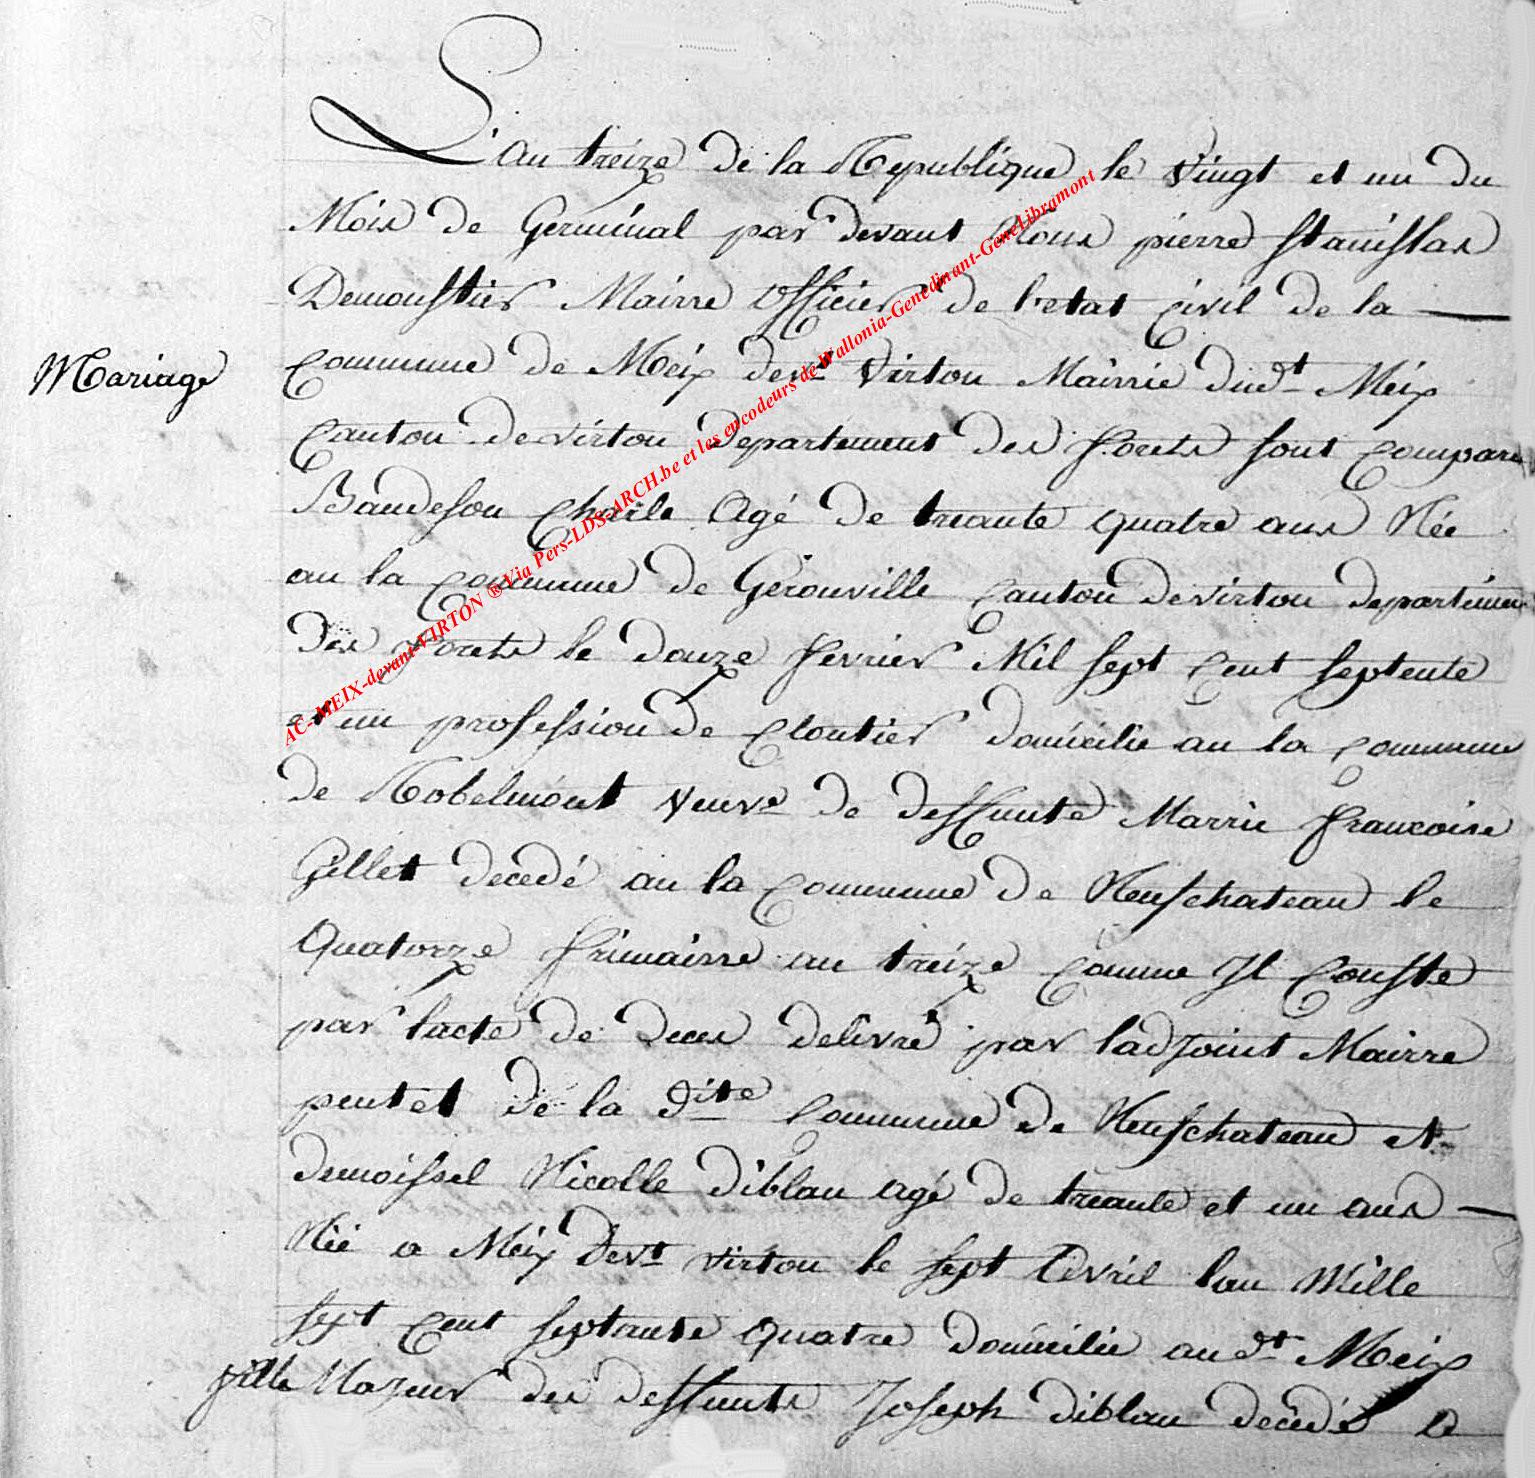 L'an treize de la Republique le vingt et un du
Mois de Germinal par devant Nous pierre stanislas
Demoustier Mairre Officier de l'etat Civil de la
Mariage
Commune de Meix devt Virton Mairrie dudt Meix
Canton de virton departement des forets sont compare
Baudeson Charle Agé de treante quatre ans Née
an la Commune de Gérouville Canton de virton departemen
des forets le douze fevrier Mil sept Cent septente
et un profession de Cloutier domicilie an la Commune
de Robelmont veuve de deffunte Marrie francoise
Gillet decedé an la Commune de Neufchateau le
Quatorze frimairre an treize Comme Il Conste
par lacte de deces delivré par ladjoint Mairre
peutet de la dite Commune de Neufchateau et
demoissel Nicolle diblau agé de treante et un ans
Née a Meix devt virton le sept Avril lan Mille
sept Cent septante quatre domicilie audt Meix
fille Majeur des deffunts Joseph diblau decedé a
AC-MEIX-devant-VIRTON ® Via Pers-LDS-ARCH.be et les encodeurs de Wallonia-Genedinant-GeneLibramont